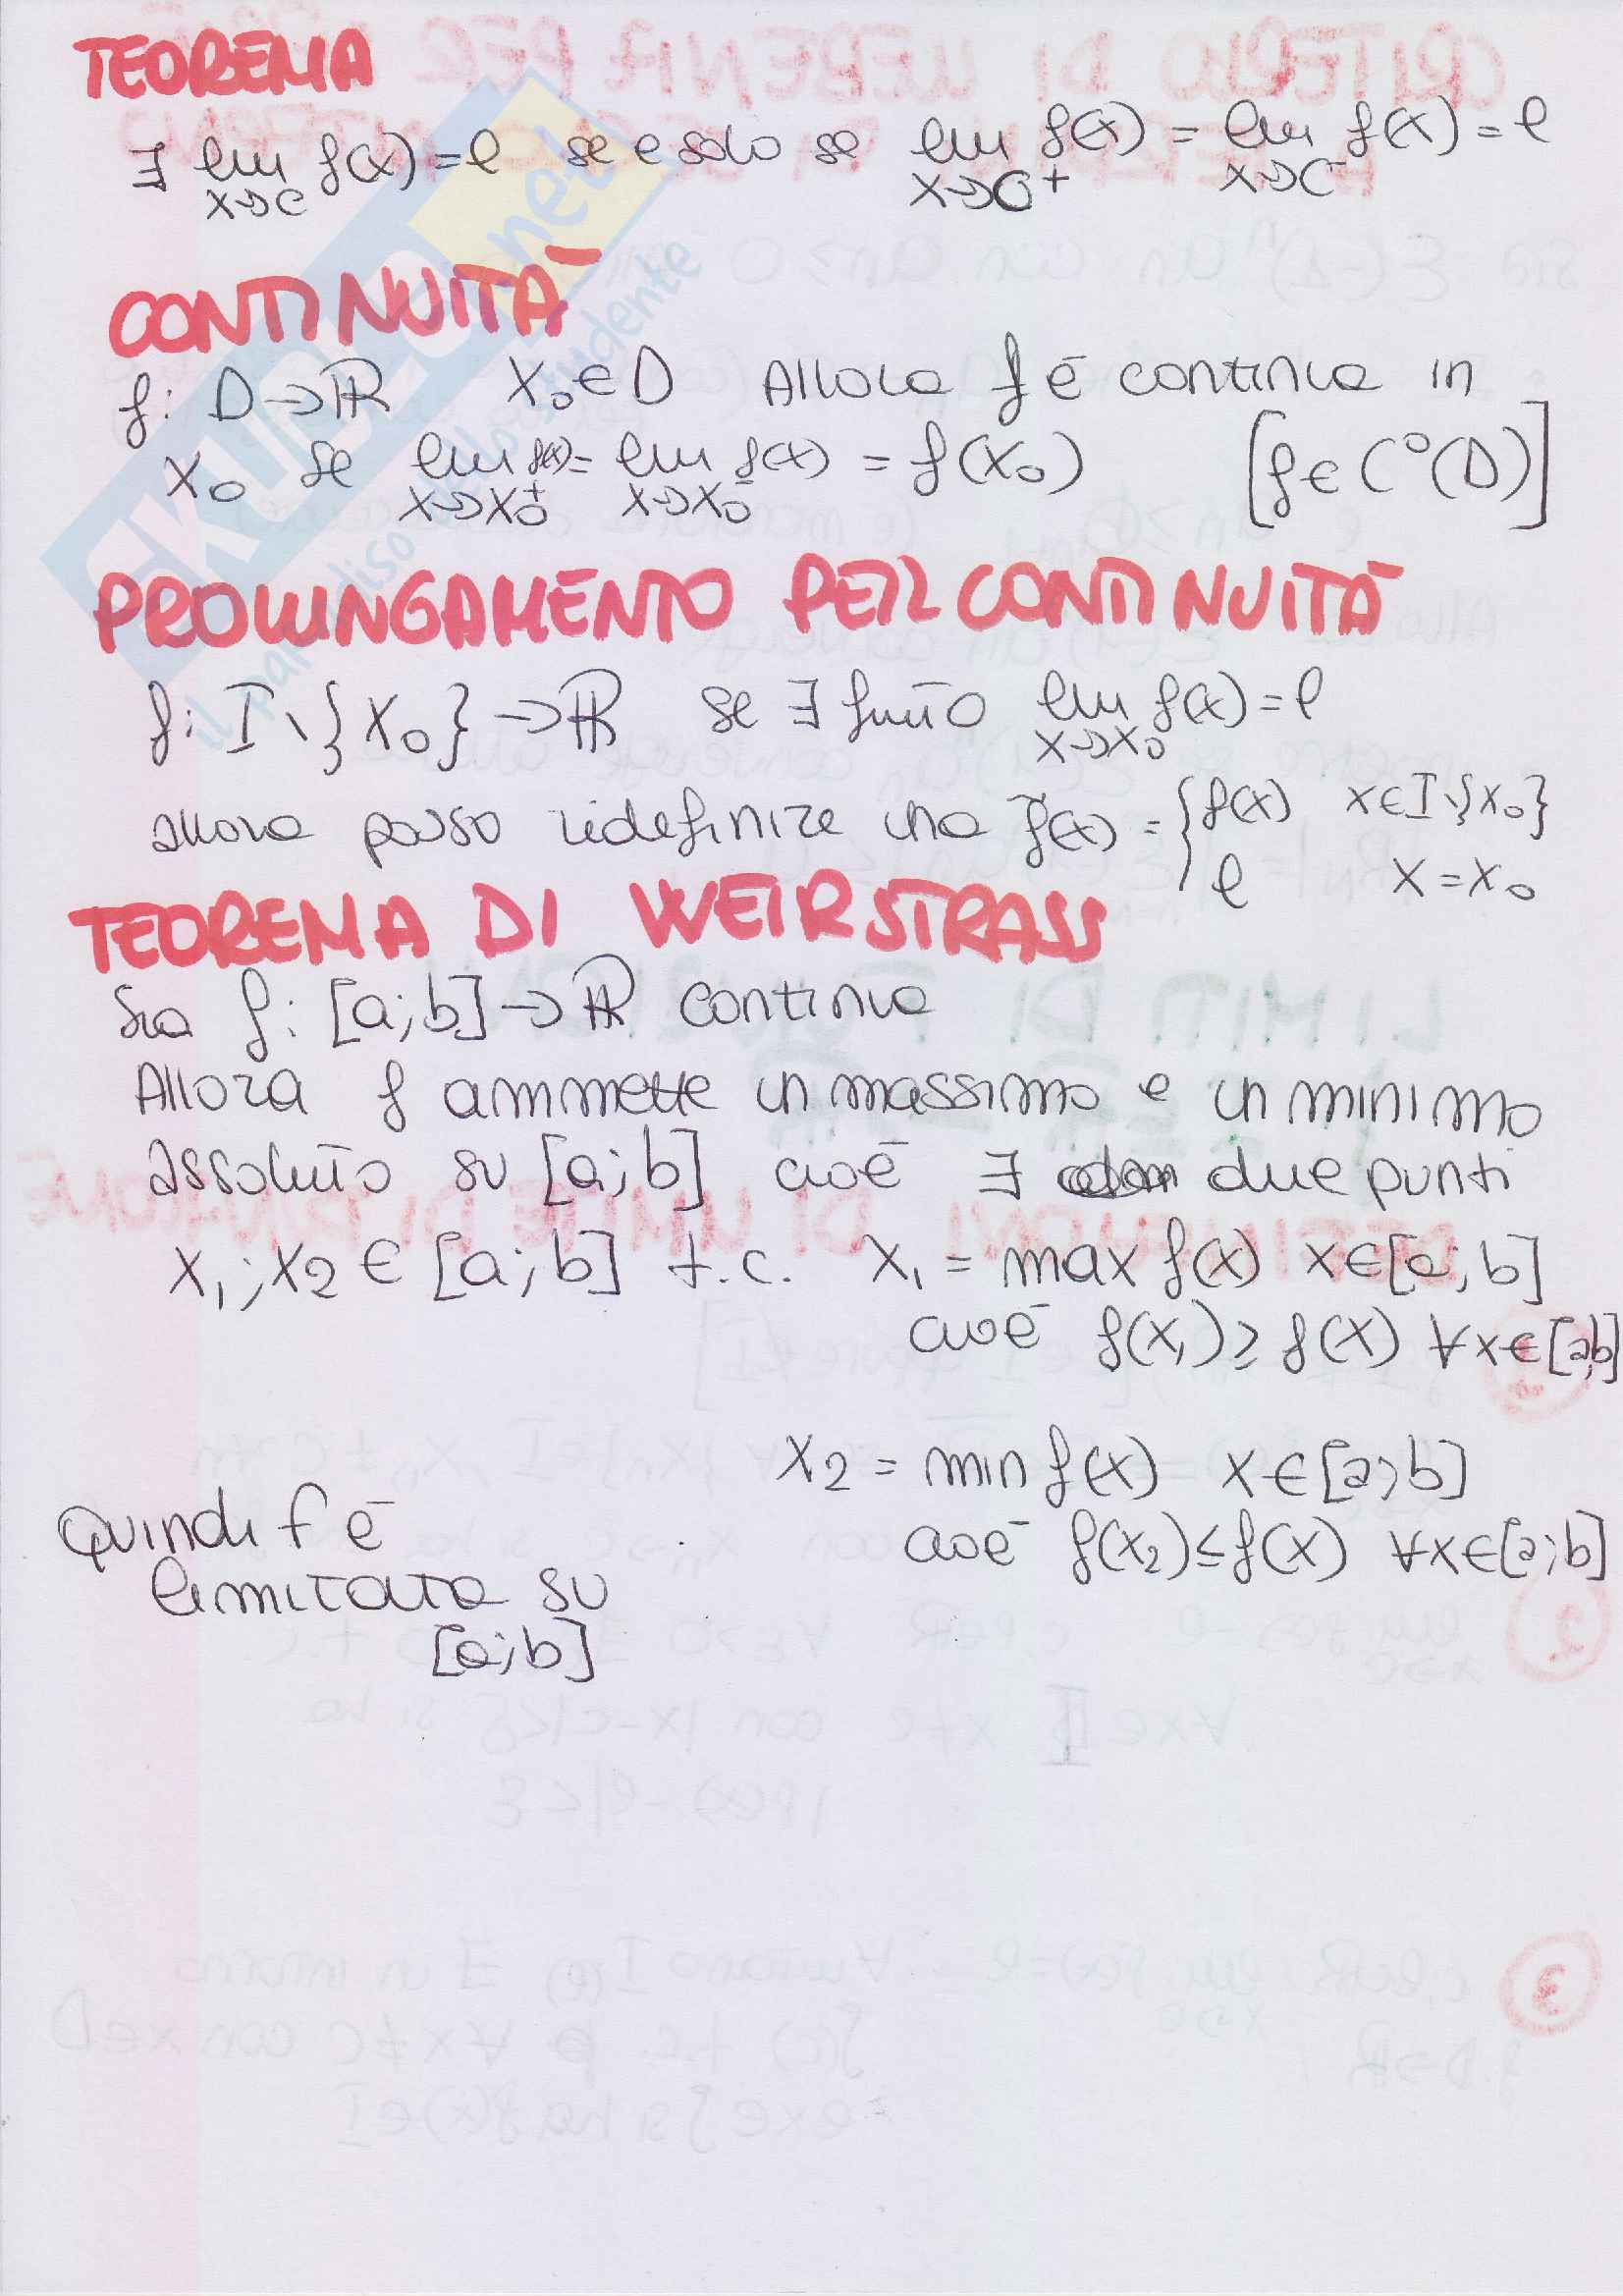 TEOREMA
∃ lim x→c f(x) = l se e solo se lim x→c+ f(x) = lim x→c- f(x) = l
CONTINUITÀ
f: D→ℝ x₀∈D Allora f è continua in
x₀ se lim x→x₀+ f(x) = lim x→x₀- f(x) = f(x₀) [f∈C°(D)]
PROLUNGAMENTO PER CONTINUITÀ
f: I\{x₀}→ℝ se ∃ finito lim x→x₀ f(x) = l
allora posso ridefinire una f̃(x) = { f(x) x∈I\{x₀}
l x=x₀
TEOREMA DI WEIRSTRASS
Sia f: [a;b]→ℝ continua
Allora f ammette un massimo e un minimo
assoluto su [a;b] cioè ∃ due punti
x₁;x₂∈[a;b] t.c. x₁ = max f(x) x∈[a;b]
cioè f(x₁)≥f(x) ∀x∈[a;b]
x₂ = min f(x) x∈[a;b]
cioè f(x₂)≤f(x) ∀x∈[a;b]
Quindi f è
limitata su
[a;b]
SKUOLA.net
il paradiso dello studente